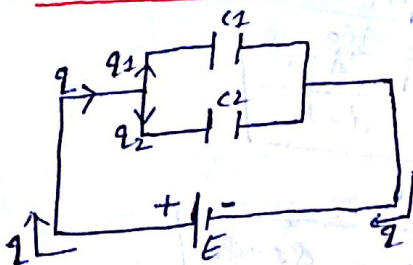 C1
q q1
C2
q2
+ -
q E q